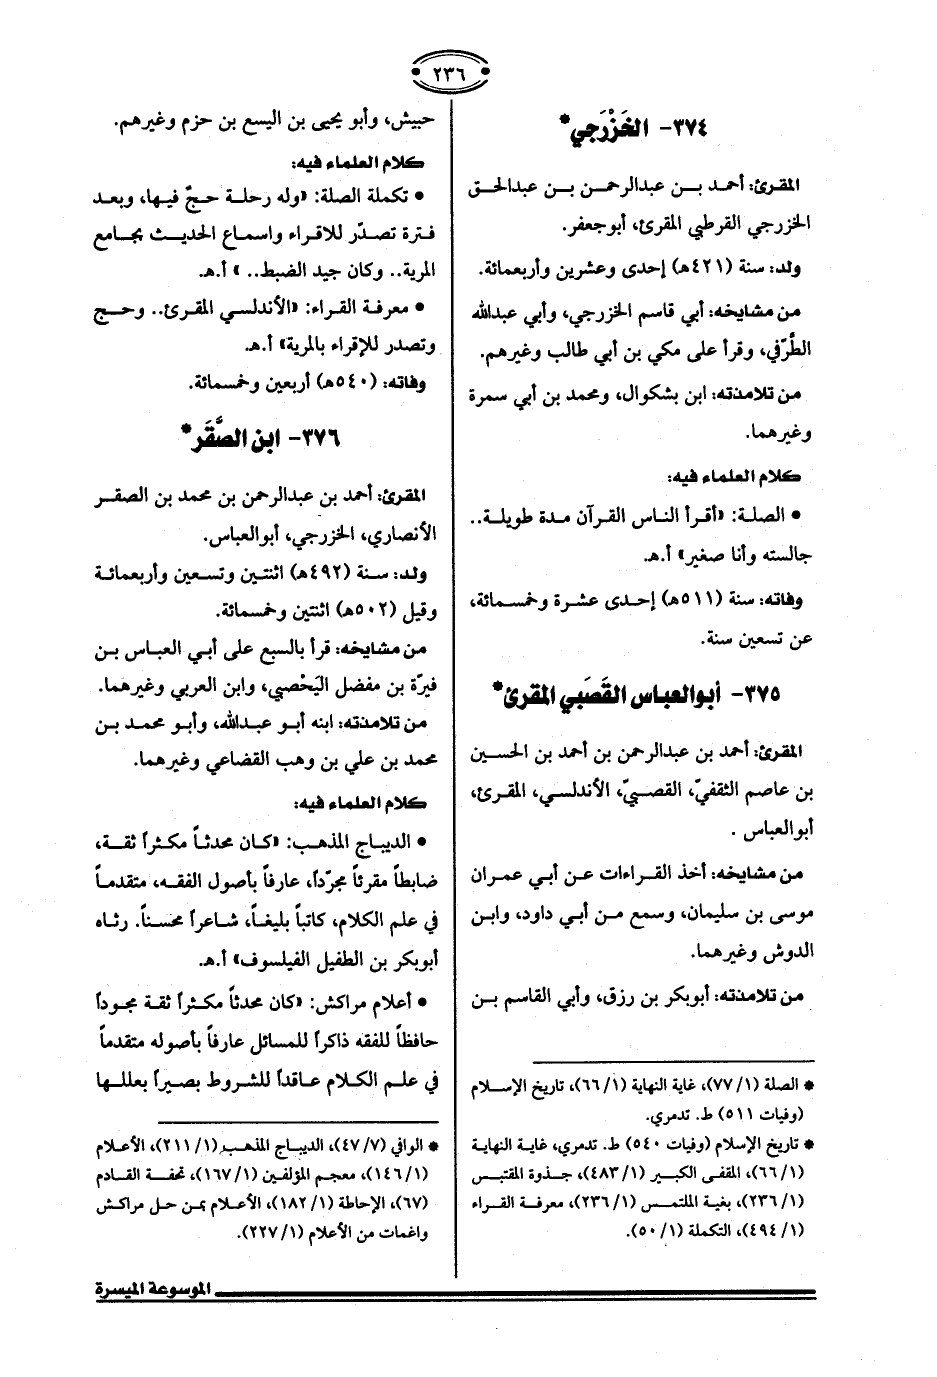 ٢٣٦
٣٧٤- الخَزْرَجي*
المقرئ: أحمد بن عبدالرحمن بن عبدالحق
الخزرجي القرطبي المقرئ، أبوجعفر.
ولد: سنة (٤٢١هـ) إحدى وعشرين وأربعمائة.
من مشايخه: أبي قاسم الخزرجي، وأبي عبدالله
الطَّرَفي، وقرأ على مكي بن أبي طالب وغيرهم.
من تلامذته: ابن بشكوال، ومحمد بن أبي سمرة
وغيرهما.
كلام العلماء فيه:
• الصلة: «أقرأ الناس القرآن مدة طويلة..
جالسته وأنا صغير» أ.هـ.
وفاته: سنة (٥١١هـ) إحدى عشرة وخمسمائة،
عن تسعين سنة.
٣٧٥- أبوالعباس القَصَبي المقرئ*
المقرئ: أحمد بن عبدالرحمن بن أحمد بن الحسين
بن عاصم الثقفيّ، القصبيّ، الأندلسي، المقرئ،
أبوالعباس .
من مشايخه: أخذ القراءات عن أبي عمران
موسى بن سليمان، وسمع من أبي داود، وابن
الدوش وغيرهما.
من تلامذته: أبوبكر بن رزق، وأبي القاسم بن
* الصلة (١/ ٧٧)، غاية النهاية (١/ ٦٦)، تاريخ الإسلام
(وفيات ٥١١) ط. تدمري.
* تاريخ الإسلام (وفيات ٥٤٠) ط. تدمري، غاية النهاية
(١/ ٦٦)، المقفى الكبير (١/ ٤٨٣)، جذوة المقتبس
(١/ ٢٣٦)، بغية الملتمس (١/ ٢٣٦)، معرفة القراء
(١/ ٤٩٤)، التكملة (١/ ٥٠).
حبيش، وأبو يحيى بن اليسع بن حزم وغيرهم.
كلام العلماء فيه:
• تكملة الصلة: «وله رحلة حجّ فيها، وبعد
فترة تصدّر للاقراء واسماع الحديث بجامع
المرية.. وكان جيد الضبط.. » أ.هـ.
• معرفة القراء: «الأندلسي المقرئ.. وحج
وتصدر للإقراء بالمرية» أ.هـ.
وفاته: (٥٤٠هـ) أربعين وخمسمائة.
٣٧٦- ابن الصَّقَر*
المقرئ: أحمد بن عبدالرحمن بن محمد بن الصقر
الأنصاري، الخزرجي، أبوالعباس.
ولد: سنة (٤٩٢هـ) اثنتين وتسعين وأربعمائة
وقيل (٥٠٢هـ) اثنتين وخمسمائة.
من مشايخه: قرأ بالسبع على أبي العباس بن
فيرّة بن مفضل اليَحْصبي، وابن العربي وغيرهما.
من تلامذته: ابنه أبو عبدالله، وأبو محمد بن
محمد بن علي بن وهب القضاعي وغيرهما.
كلام العلماء فيه:
• الديباج المذهب: «كان محدثاً مكثراً ثقة،
ضابطاً مقرئاً مجرّداً، عارفاً بأصول الفقه، متقدماً
في علم الكلام، كاتباً بليغاً، شاعراً محسناً. رثاه
أبوبكر بن الطفيل الفيلسوف» أ.هـ.
• أعلام مراكش: «كان محدثاً مكثراً ثقة مجوداً
حافظاً للفقه ذاكراً للمسائل عارفاً بأصوله متقدماً
في علم الكلام عاقداً للشروط بصيراً بعللها
* الوافي (٧/ ٤٧)، الديباج المذهب (١/ ٢١١)، الأعلام
(١/ ١٤٦)، معجم المؤلفين (١/ ١٦٧)، تحفة القادم
(٦٧)، الإحاطة (١/ ١٨٢)، الأعلام بمن حل مراكش
واغمات من الأعلام (١/ ٢٢٧).
الموسوعة الميسرة